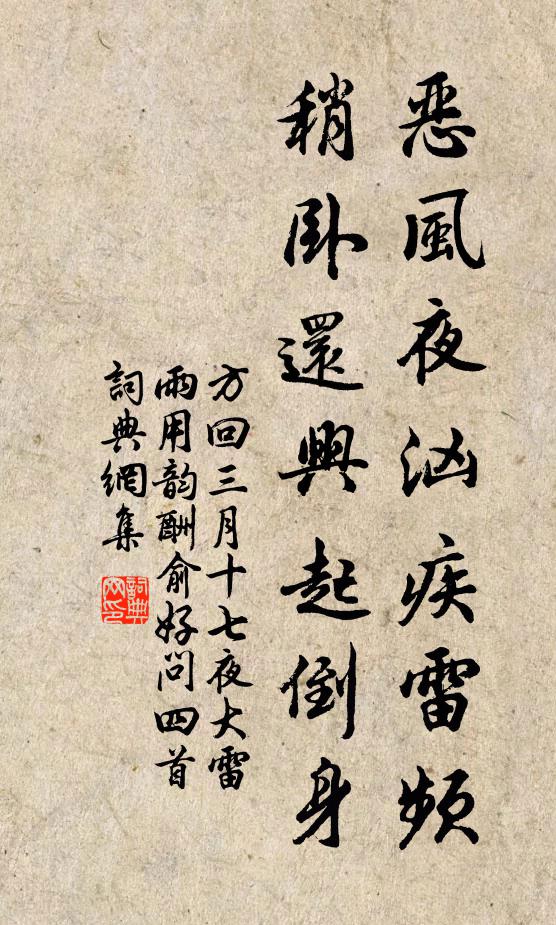 恶風夜汹疾雷頻
稍卧還興起倒身
方回三月十七夜大雷
雨用韵酬俞好问四首
詞典網集
詞典网印